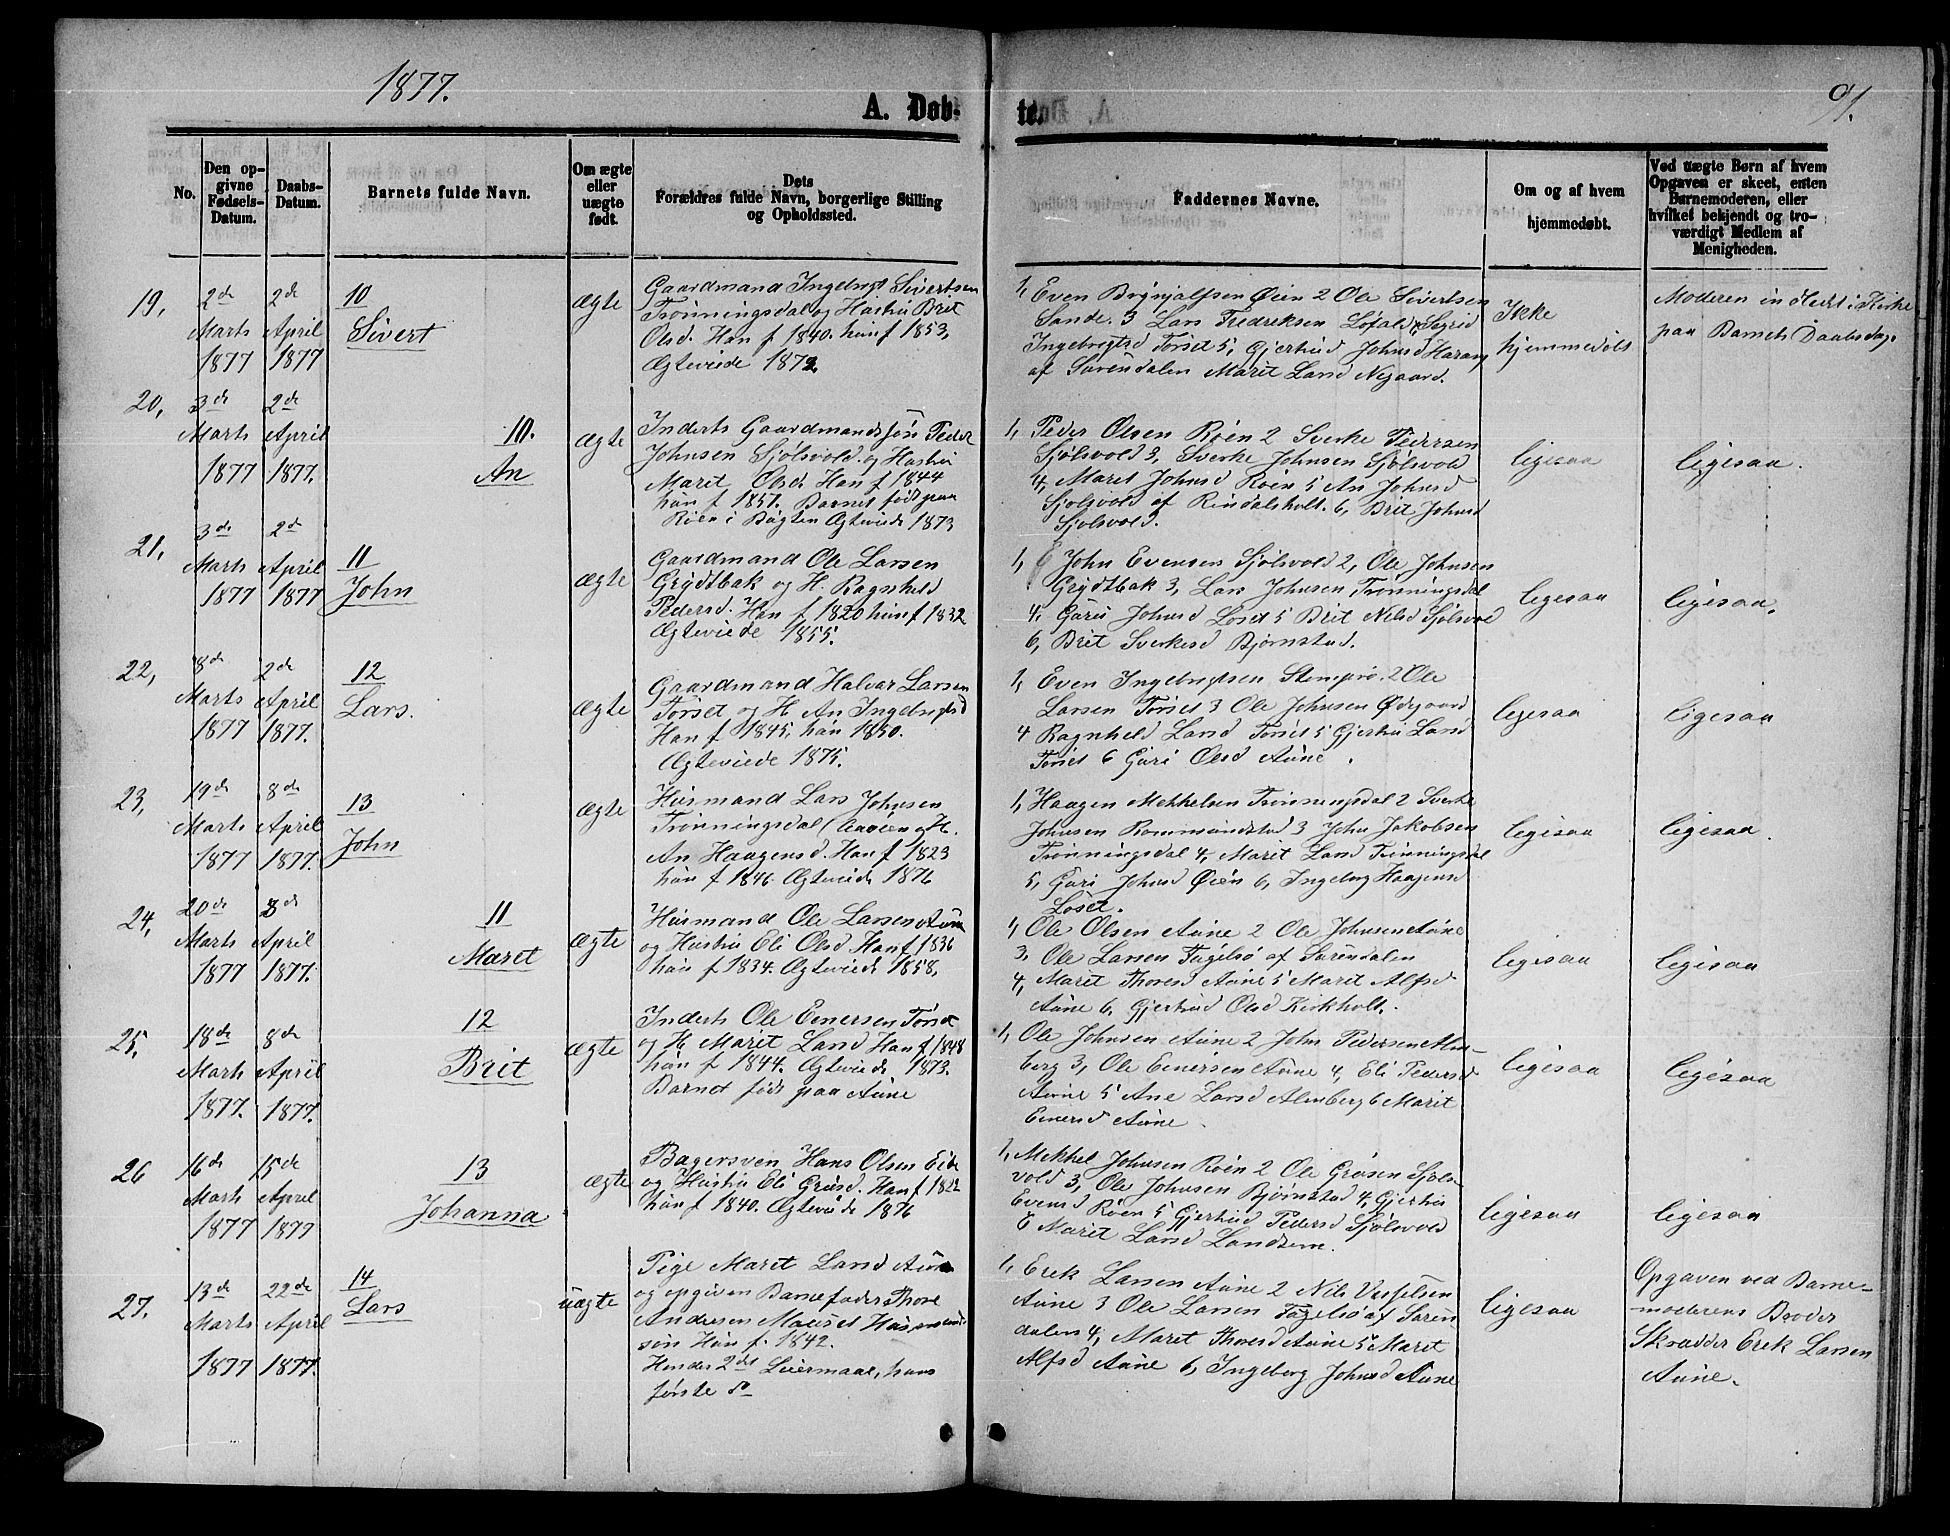 1877.
A. Døb-
te.
91.
No.
Den op-
givne
Fødsels-
Datum.
Daabs-
Datum.
Barnets fulde Navn.
Om ægte
eller
uægte
født.
Dets
Forældres fulde Navn, borgerlige Stilling
og Opholdssted.
Faddernes Navne.
Om og af hvem
hjemmedøbt.
Ved uægte Børn af hvem
Opgaven er skeet, enten
Barnemoderen, eller
hvilket bekjendt og tro-
værdigt Medlem af
Menigheden.
19,
2de
Marts
1877
2de
April
1877
10
Sivert
ægte
Gaardmand Ingebrigt Sivertsen
Trønningsdal og Hustru Brit
Olsd. Han f 1840. hun f 1853,
Ægteviede 1872.
1, Even Brynjulfsen Øien 2 Ole Sivertsen
Sande. 3 Lars Fredriksen Løfald, Sigrid
Ingebrigtsd Torset 5, Gjertrud Johnsd Harang
af Surendalen Marit Larsd Nygaard.
Ikke
hjemmedøbt
Moderen indledt i Kirke
paa Barnets Daabsdag.
20,
3de
Marts
1877
2de
April
1877.
10.
An
ægte
Inderts Gaardmands Søn Peder
Johnsen Sjølsvold. og Hustru
Marit Olsd. Han f 1844
hun f 1851. Barnet født paa
Røen i Bøgten Ægteviede 1873
1, Peder Olsen Røen 2 Sverke Pedersen
Sjølsvold 3, Sverke Johnsen Sjølsvold
4, Maret Johnsd Røen 5 An Johnsd
Sjølsvold af Rindalsholt. 6, Brit Johnsd
Sjølsvold.
ligesaa
ligesaa.
21,
3de
Marts
1877
2de
April
1877
11
John
ægte
Gaardmand Ole Larsen
Grydtbak og H. Ragnhild
Pedersd. Han f 1820 hun f 1832
Ægteviede 1855.
1, John Evensen Sjølsvold 2, Ole Johnsen
Grydtbak 3, Lars Johnsen Trønningsdal
4, Guri Johnsd Løset 5 Brit Nilsd Sjølsvold
6, Brit Sverkesd Bjørnstad.
ligesaa
ligesaa.
22,
8de
Marts
1877
2de
April
1877.
12
Lars.
ægte
Gaardmand Halvar Larsen
Torset og H An Ingebrigtsd
Han f 1845. hun 1850.
Ægteviede 1875.
1, Even Ingebrigtsen Stomprø. 2 Ole
Larsen Torset 3 Ole Johnsen Ødegaard
4 Ragnhild Larsd Torset 5 Gjertru Larsd
Torset 6 Guri Olsd Aune.
ligesaa
ligesaa
23,
19de
Marts
1877
8de
April
1877.
13
John
ægte
Husmand Lars Johnsen
Trønningsdal og H.
An Haagensd. Han f 1823
hun f 1846. Ægteviede 1876
1, Haagen Mekkelsen Trønningsdal 2 Sverke
Johnsen Rommundstad 3 John Jakobsen
Trønningsdal 4, Marit Larsd Trønningsdal
5, Guri Johnsd Øien 6, Ingeborg Haagensd
Løset.
ligesaa
ligesaa.
24,
20de
Marts
1877
8de
April
1877.
11
Maret
ægte
Husmand Ole Larsen Aune
og Hustru Eli Olsd. Han f 1836
hun f 1834. Ægteviede 1858,
1, Ole Olsen Aune 2 Ole Johnsen Aune
3, Ole Larsen Fugelsø af Surendalen
4, Marit Thoresd Aune 5 Marit Alfsd
Aune 6, Gjertrud Olsd Kirkholt.
ligesaa
ligesaa
25,
18de
Marts
1877.
8de
April
1877.
12
Brit
ægte
Inderts Ole Einersen Torset
og H. Marit Larsd Han f 1848
hun f 1844. Ægteviede 1873.
Barnet født paa Aune
1, Ole Johnsen Aune 2 John Pedersen Alm-
berg 3, Ole Einersen Aune 4, Eli Pedersd
Aune 5 Ane Larsd Almberg 6 Marit
Einersd Aune.
ligesaa
ligesaa
26
16de
Marts
1877
15de
April
1877
13
Johanna
ægte
Bagersven Hans Olsen Eide
og Hustru Eli Gruesd. Han f 1822
hun f 1840. Ægteviede 1876
1, Mekkel Johnsen Røen 2 Ole Gruesen Sjøls-
vold 3, Ole Johnsen Bjørnstad 4, Gjertru
Evensd Røen 5 Gjertrud Pedersd Sjølsvold
6 Marit Larsd Landsem.
ligesaa
ligesaa
27.
13de
Marts
1877
22de
April
1877.
14
Lars
uægte
Pige Maret Larsd Aune
og opgiven Barnefader Thore
Andersen Husmand-
søn Hun f. 1842.
Hendes 2det Leiermaal, hans
første do
1, Erek Larsen Aune 2 Nils Vesselsen
Aune 3 Ole Larsen Fugelsø af Suren
dalen 4, Maret Thoresd Aune 5 Maret
Alfsd Aune 6, Ingeborg Johnsd Aune
ligesaa
Opgaven ved Barne-
moderens Broder
Skrædder Erek Larsen
Aune.